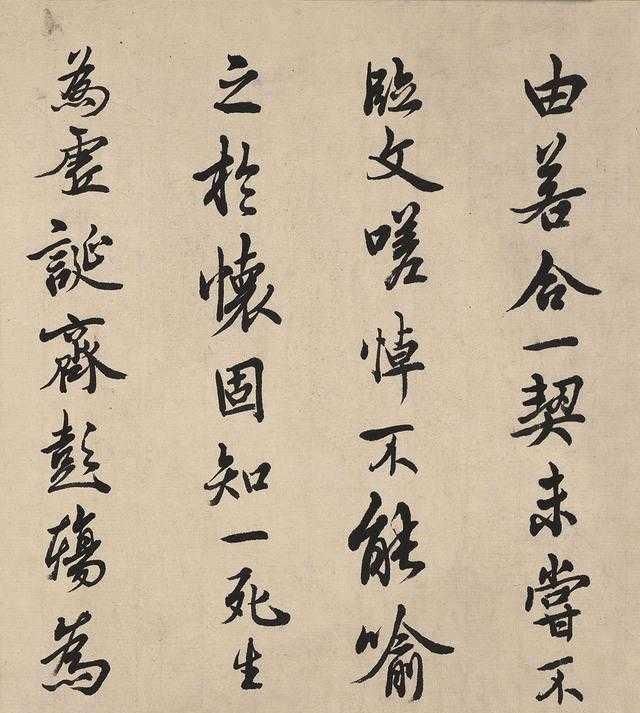 由若合一契未嘗不
臨文嗟悼不能喻
之於懷固知一死生
為虛誕齊彭殤為